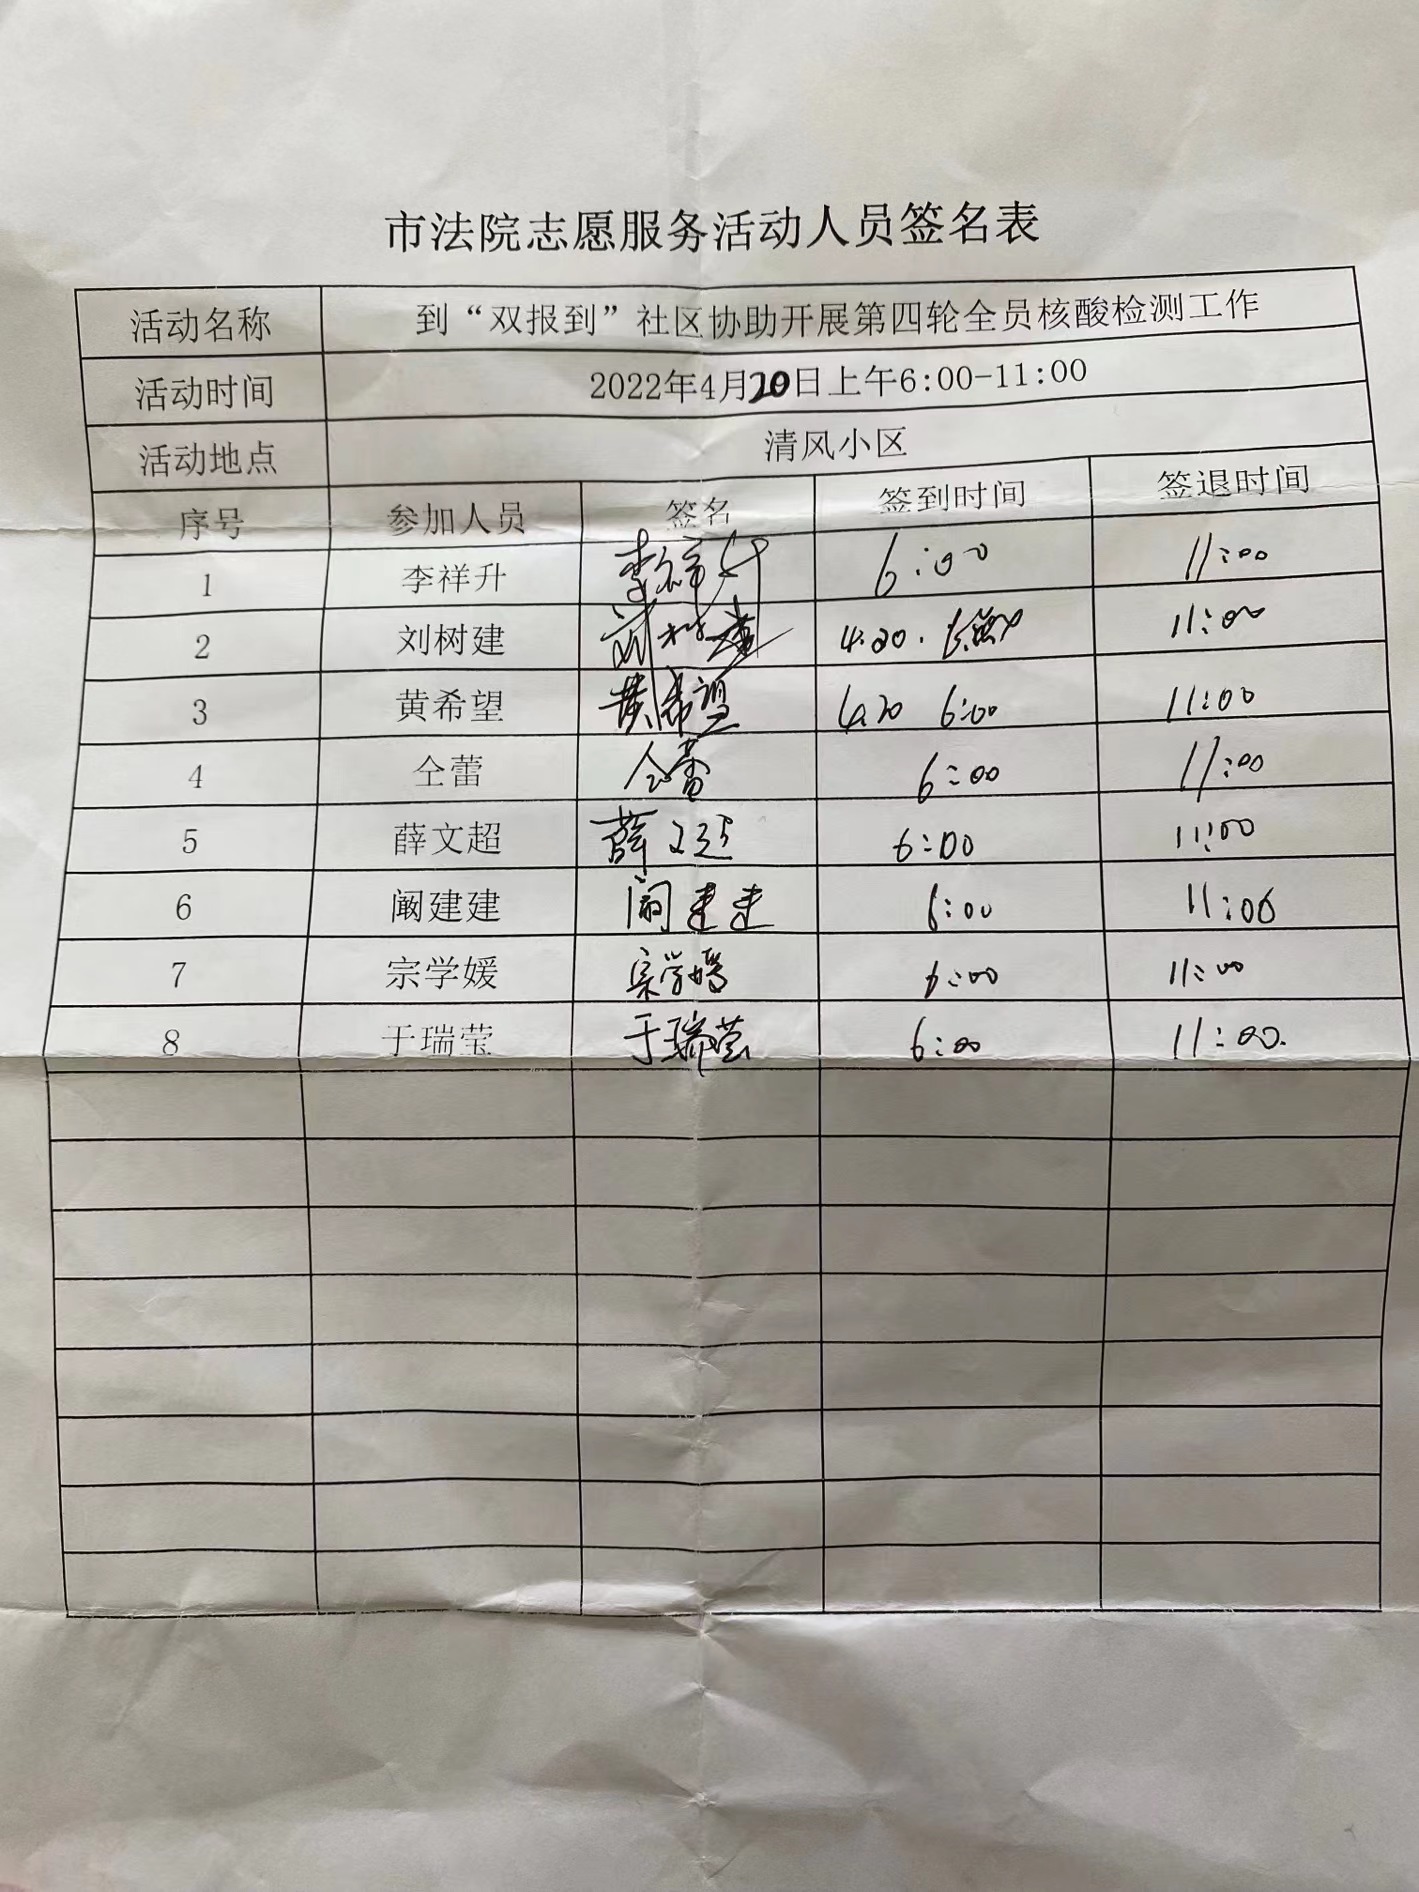 市法院志愿服务活动人员签名表
活动名称 到“双报到”社区协助开展第四轮全员核酸检测工作
活动时间 2022年4月20日上午6:00-11:00
活动地点 清风小区
序号 参加人员 签名 签到时间 签退时间
1 李祥升 李祥升 6:00 11:00
2 刘树建 刘树建 4.20. 11:00
3 黄希望 黄希望 4.20 6:00 11:00
4 仝蕾 仝蕾 6:00 11:00
5 薛文超 薛文超 6:00 11:00
6 阚建建 阚建建 6:00 11:00
7 宗学媛 宗学媛 6:00 11:00
8 于瑞莹 于瑞莹 6:00 11:00.